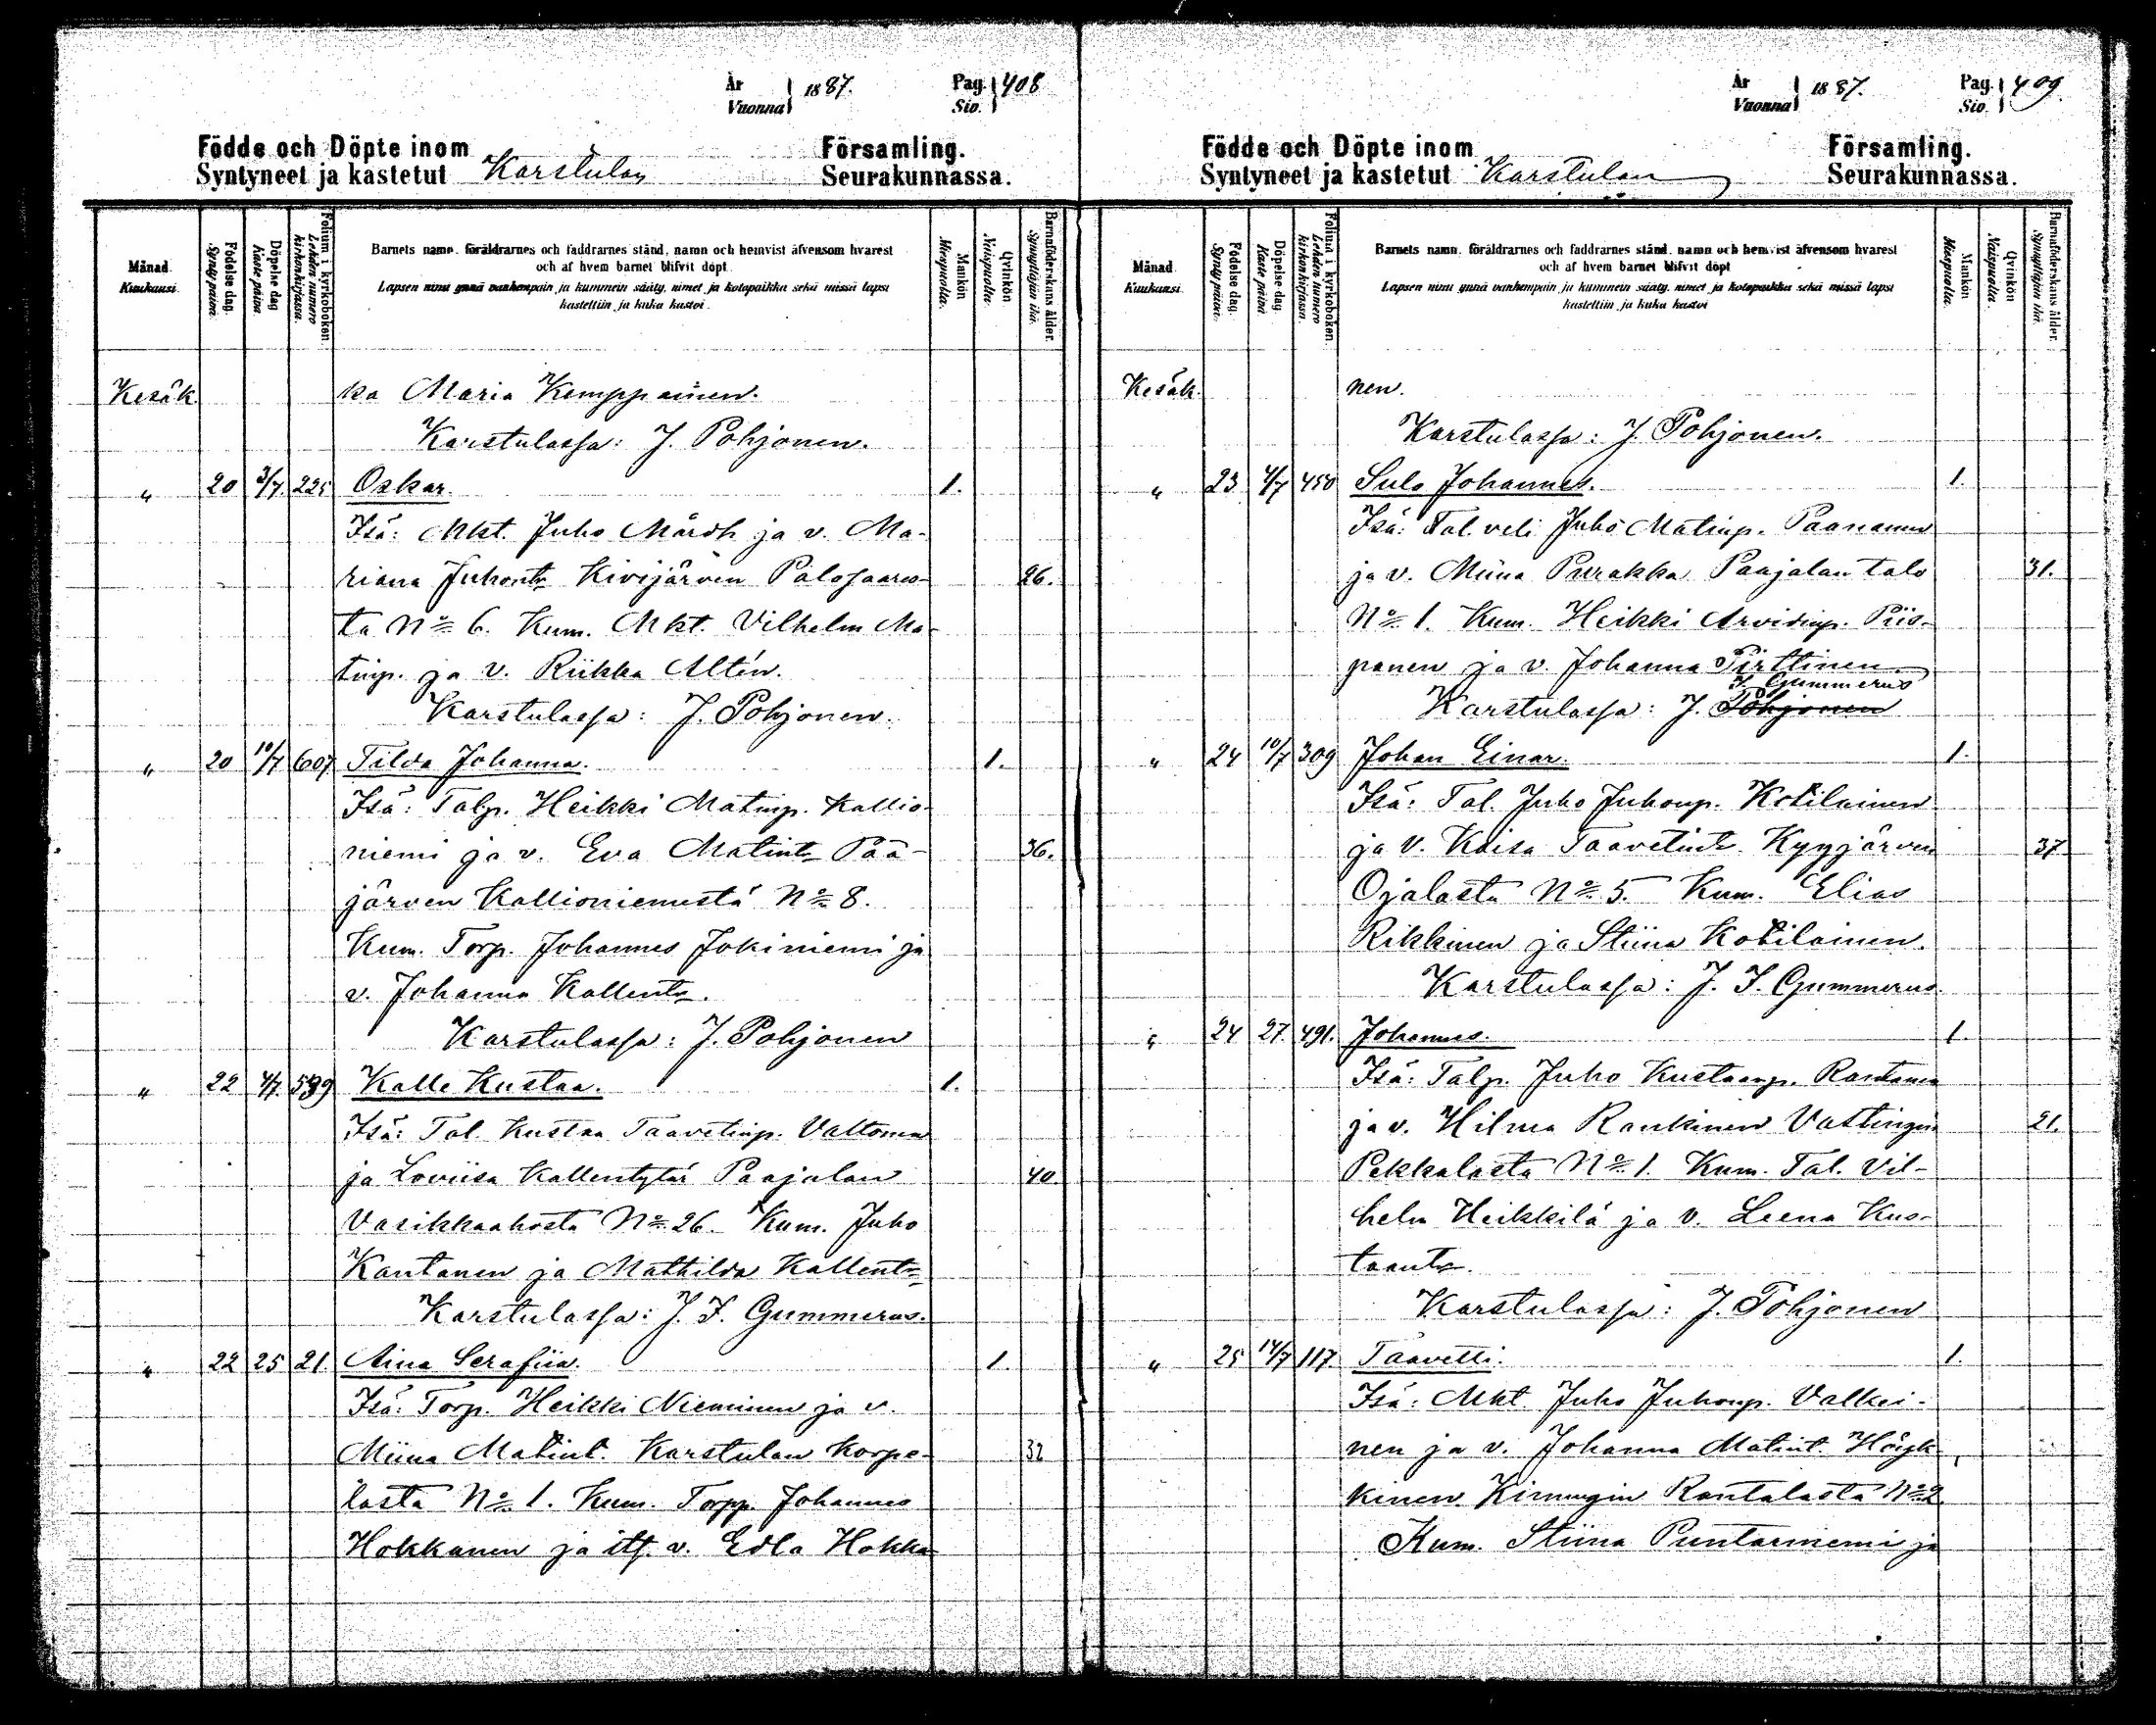 År
Vuonna 1887.
Pag.
Sio. 408
Födde och Döpte inom
Syntyneet ja kastetut Karstulan
Församling.
Seurakunnassa.
Månad
Kuukausi.
Födelse dag.
Synty päivä.
Döpelse dag
Kaste päivä
Folium i kyrkoboken
Lehden numero kirkonkirjassa.
Barnets namn. föräldrarnes och faddrarnes stånd, namn och hemvist äfvensom hvarest
och af hvem barnet blifvit döpt.
Lapsen nimi ynnä vanhempain ja kummein sääty, nimet ja kotopaikka sekä missä lapsi
kastettiin ja kuka kastoi.
Mankön
Miespuolia.
Qvinkön
Naispuolia.
Barnaföderskans ålder.
Synnyttäjän ikä.
Kesäk. ka Maria Kemppainen.
Karstulassa: J. Pohjonen.
" 20 3/7. 225 Oskar. 1.
Isä: Mkt. Juho Mårdh ja v. Ma-
riana Juhontr Kivijärven Palosaares- 26.
ta No 6. Kum. Mkt. Vilhelm Ma-
tinp. ja v. Riikka Altén.
Karstulassa: J. Pohjonen.
" 20 10/7 607 Tilda Johanna. 1.
Isä: Talp. Heikki Matinp. Kallio-
niemi ja v. Eva Matintr Pää- 36.
järven Kallioniemestä No 8.
Kum. Torp. Johannes Jokiniemi ja
v. Johanna Kallentr.
Karstulassa: J. Pohjonen
" 22 4/7. 539 Kalle Kustaa. 1.
Isä: Tal. Kustaa Taavetinp. Valtonen
ja Loviisa Kallentytär Paajalan 40
Vasikkaahosta No 26. Kum. Juho
Kantanen ja Mathilda Kallentr
Karstulassa: J. F. Gummerus.
" 22 25 21. Aina Serafiia. 1.
Isä: Torp. Heikki Nieminen ja v.
Miina Matint. Karstulan Korpe- 32
lasta No 1. Kum. Torpp. Johannes
Hokkanen ja itf. v. Edla Hokka-
År
Vuonna 1887.
Pag.
Sio. 409.
Födde och Döpte inom
Syntyneet ja kastetut Karstulan
Församling.
Seurakunnassa.
Månad
Kuukausi
Födelse dag.
Synty päivä.
Döpelse dag
Kaste päivä
Folium i kyrkoboken.
Lehden numero kirkonkirjassa.
Barnets namn. föräldrarnes och faddrarnes stånd. namn och hemvist äfvensom hvarest
och af hvem barnet blifvit döpt
Lapsen nimi ynnä vanhempain ja kummein sääty, nimet ja kotopaikka sekä missä lapsi
kastettiin ja kuka kastoi
Mankön
Miespuolia.
Qvinkön
Naispuolia.
Barnaföderskans ålder.
Synnyttäjän ikä.
Kesäk. nen.
Karstulassa: J. Pohjonen.
" 23 4/7 450 Sulo Johannes. 1.
Isä: Tal. veli Juho Matinp. Paananen
ja v. Miina Purakka Paajalan talo 31.
No 1. Kum. Heikki Arvidinp. Piis-
panen ja v. Johanna Pirttinen.
F. Gummerus
Karstulassa: J. Pohjonen
" 24 10/7 309 Johan Einar. 1.
Isä: Tal. Juho Juhonp. Kotilainen
ja v. Kaisa Taavetint. Kyyjärven 37
Ojalasta No 5. Kum. Elias
Rikkinen ja Stiina Kotilainen.
Karstulassa: J. F. Gummerus.
" 24 27. 491. Johannes. 1.
Isä: Talp. Juho Kustaanp. Rantanen
ja v. Hilma Rankinen Vastingin 21.
Pekkalasta No 1. Kum. Tal. Vil-
helm Heikkilä ja v. Leena Kus-
taantr.
Karstulassa: J. Pohjonen
" 25 14/7 117. Taavetti. 1.
Isä: Mkt. Juho Juhonp. Valkei-
nen ja v. Johanna Matint. Höyk-
kinen Kimingin Rantalasta No 2
Kum. Stiina Puntarniemi ja